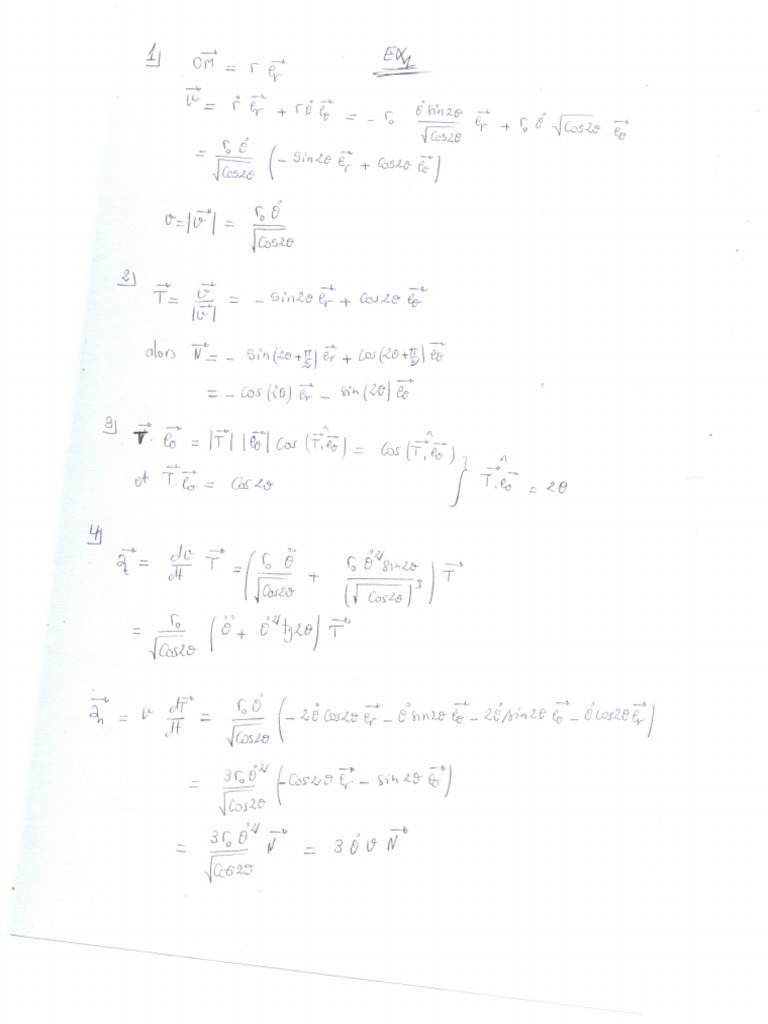 EX1
1) \vec{OM} = r \vec{e_r}
\vec{v} = \dot{r} \vec{e_r} + r\dot{θ} \vec{e_θ} = - r_0 \frac{\dot{θ} sin2θ}{\sqrt{cos2θ}} \vec{e_r} + r_0 \dot{θ} \sqrt{cos2θ} \vec{e_θ}
= \frac{r_0 \dot{θ}}{\sqrt{cos2θ}} (- sin2θ \vec{e_r} + cos2θ \vec{e_θ})
v = |\vec{v}| = \frac{r_0 \dot{θ}}{\sqrt{cos2θ}}
2) \vec{T} = \frac{\vec{v}}{|\vec{v}|} = - sin2θ \vec{e_r} + cos2θ \vec{e_θ}
alors \vec{N} = - sin(2θ + \frac{π}{2}) \vec{e_r} + cos(2θ + \frac{π}{2}) \vec{e_θ}
= - cos(2θ) \vec{e_r} - sin(2θ) \vec{e_θ}
3) \vec{T} . \vec{e_θ} = |\vec{T}| |\vec{e_θ}| cos(\widehat{\vec{T}, \vec{e_θ}}) = cos(\widehat{\vec{T}, \vec{e_θ}})
et \vec{T} . \vec{e_θ} = cos2θ } \widehat{\vec{T}, \vec{e_θ}} = 2θ
4) \vec{a_t} = \frac{dv}{dt} \vec{T} = (\frac{r_0 \ddot{θ}}{\sqrt{cos2θ}} + \frac{r_0 \dot{θ}^2 sin2θ}{(\sqrt{cos2θ})^3}) \vec{T}
= \frac{r_0}{\sqrt{cos2θ}} (\ddot{θ} + \dot{θ}^2 tg2θ) \vec{T}
\vec{a_n} = v \frac{d\vec{T}}{dt} = \frac{r_0 \dot{θ}}{\sqrt{cos2θ}} (- 2\dot{θ} cos2θ \vec{e_r} - \dot{θ} sin2θ \vec{e_θ} - 2\dot{θ} sin2θ \vec{e_θ} - \dot{θ} cos2θ \vec{e_r})
= \frac{3 r_0 \dot{θ}^2}{\sqrt{cos2θ}} (- cos2θ \vec{e_r} - sin2θ \vec{e_θ})
= \frac{3 r_0 \dot{θ}^2}{\sqrt{cos2θ}} \vec{N} = 3 \dot{θ} v \vec{N}